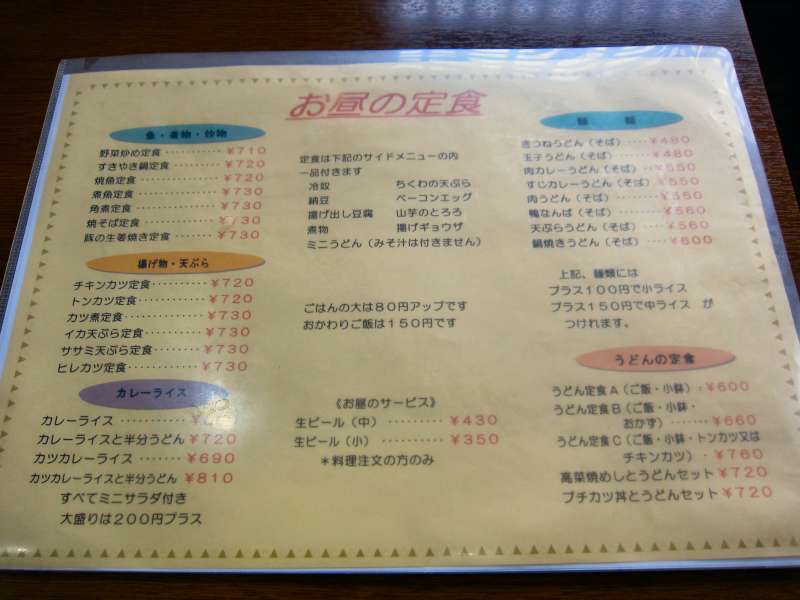 お昼の定食
魚・煮物・炒物
野菜炒め定食 ‥‥‥‥ ¥710
すきやき鍋定食 ‥‥‥‥ ¥720
焼魚定食 ‥‥‥‥ ¥720
煮魚定食 ‥‥‥‥ ¥730
角煮定食 ‥‥‥‥ ¥730
焼そば定食 ‥‥‥‥ ¥730
豚の生姜焼き定食 ‥‥‥‥ ¥730
揚げ物・天ぷら
チキンカツ定食 ‥‥‥‥ ¥720
トンカツ定食 ‥‥‥‥ ¥720
カツ煮定食 ‥‥‥‥ ¥730
イカ天ぷら定食 ‥‥‥‥ ¥730
ササミ天ぷら定食 ‥‥‥‥ ¥730
ヒレカツ定食 ‥‥‥‥ ¥730
カレーライス
カレーライス ‥‥‥‥
カレーライスと半分うどん ¥720
カツカレーライス ‥‥‥ ¥690
カツカレーライスと半分うどん ¥810
すべてミニサラダ付き
大盛りは200円プラス
定食は下記のサイドメニューの内
一品付きます
冷奴 ちくわの天ぷら
納豆 ベーコンエッグ
揚げ出し豆腐 山芋のとろろ
煮物 揚げギョウザ
ミニうどん(みそ汁は付きません)
ごはんの大は80円アップです
おかわりご飯は150円です
《お昼のサービス》
生ビール(中) ‥‥‥ ¥430
生ビール(小) ‥‥‥ ¥350
*料理注文の方のみ
麺 類
きつねうどん(そば) ‥‥ ¥480
玉子うどん(そば) ‥‥ ¥480
肉カレーうどん(そば) ‥ ¥550
すじカレーうどん(そば) ¥550
肉うどん(そば) ‥‥ ¥550
鴨なんば(そば) ‥‥ ¥560
天ぷらうどん(そば) ‥‥ ¥560
鍋焼きうどん(そば) ‥‥ ¥600
上記、麺類には
プラス100円で小ライス
プラス150円で中ライス が
つけれます。
うどんの定食
うどん定食A(ご飯・小鉢)‥¥600
うどん定食B(ご飯・小鉢・
おかず) ‥‥‥ ¥660
うどん定食C(ご飯・小鉢・トンカツ又は
チキンカツ) ‥ ¥760
高菜焼めしとうどんセット ¥720
プチカツ丼とうどんセット ¥720